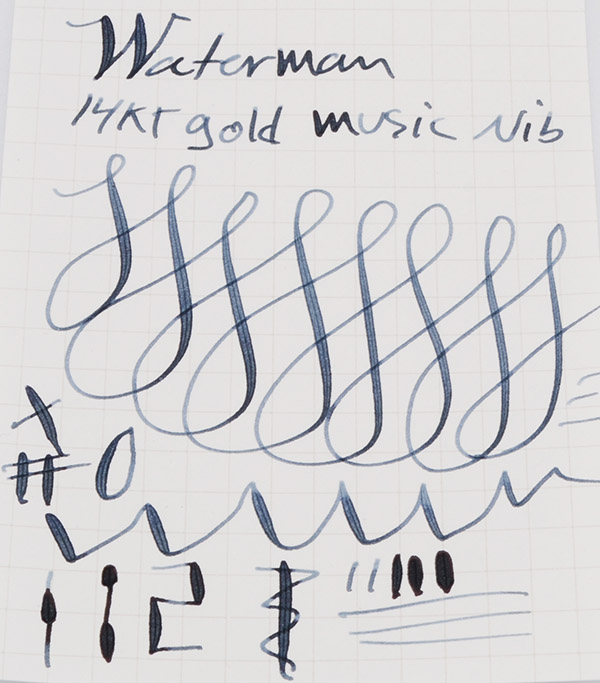 Waterman
14KT gold music Nib